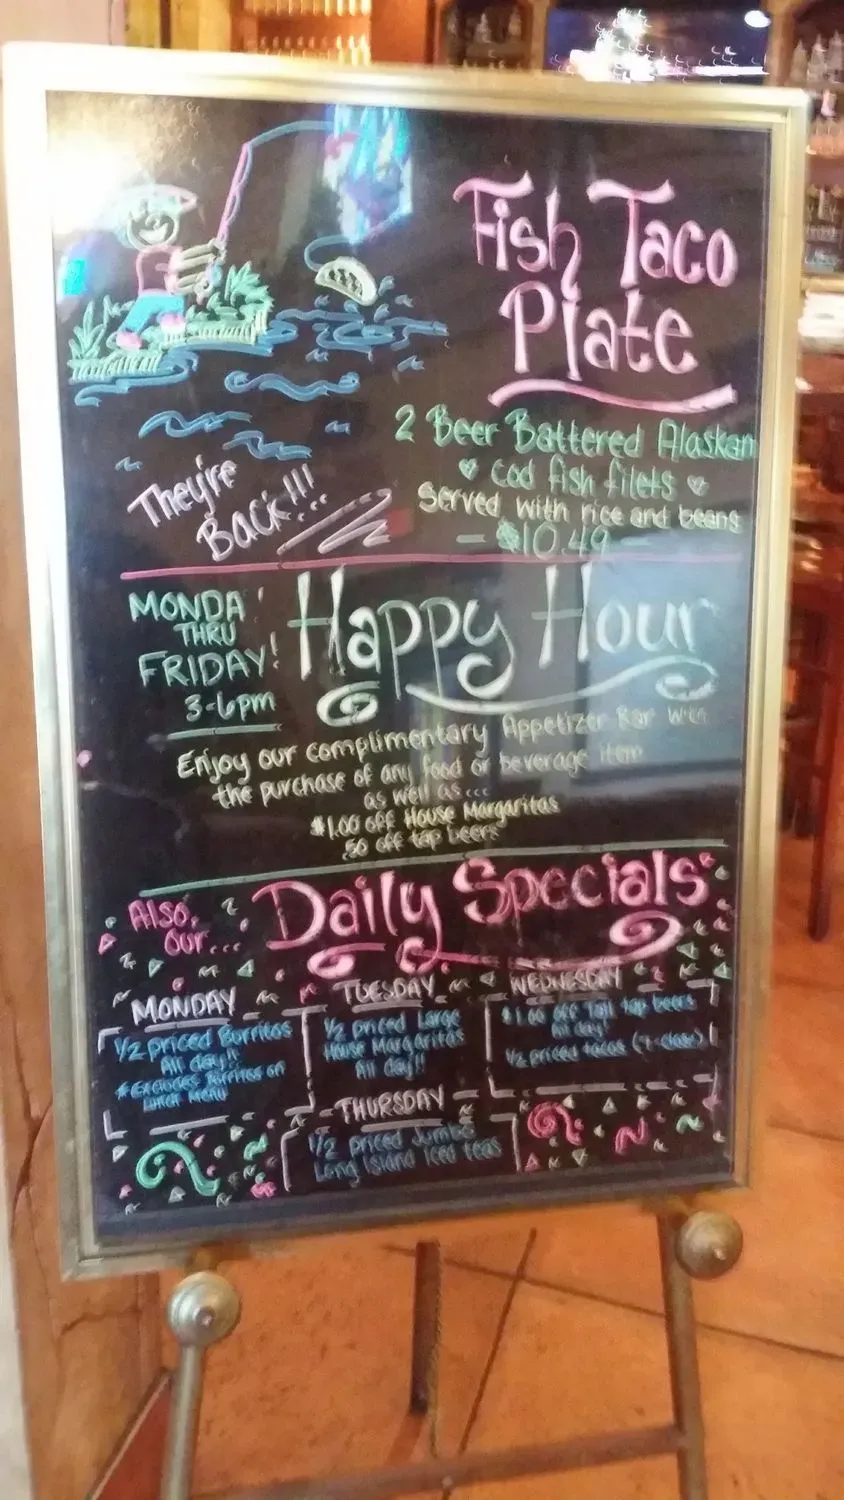 Fish Taco
Plate
2 Beer Battered Alaskan
Cod fish filets
Served with rice and beans
$10.49
They're
Back!!!
MONDA
THRU
FRIDAY!
3-6pm
Happy Hour
Enjoy our complimentary Appetizer Bar with
the purchase of any food or beverage item
as well as...
$1.00 off House Margaritas
.50 off tap beers
Also,
our...
Daily Specials
MONDAY
1/2 priced Burritos
All day!!
*Excludes Burritos on
Lunch Menu
TUESDAY
1/2 priced Large
House Margaritas
All day!!
WEDNESDAY
$1.00 off Tall tap beers
All day!
1/2 priced tacos (4-close)
THURSDAY
1/2 priced Jumbo
Long Island Iced teas